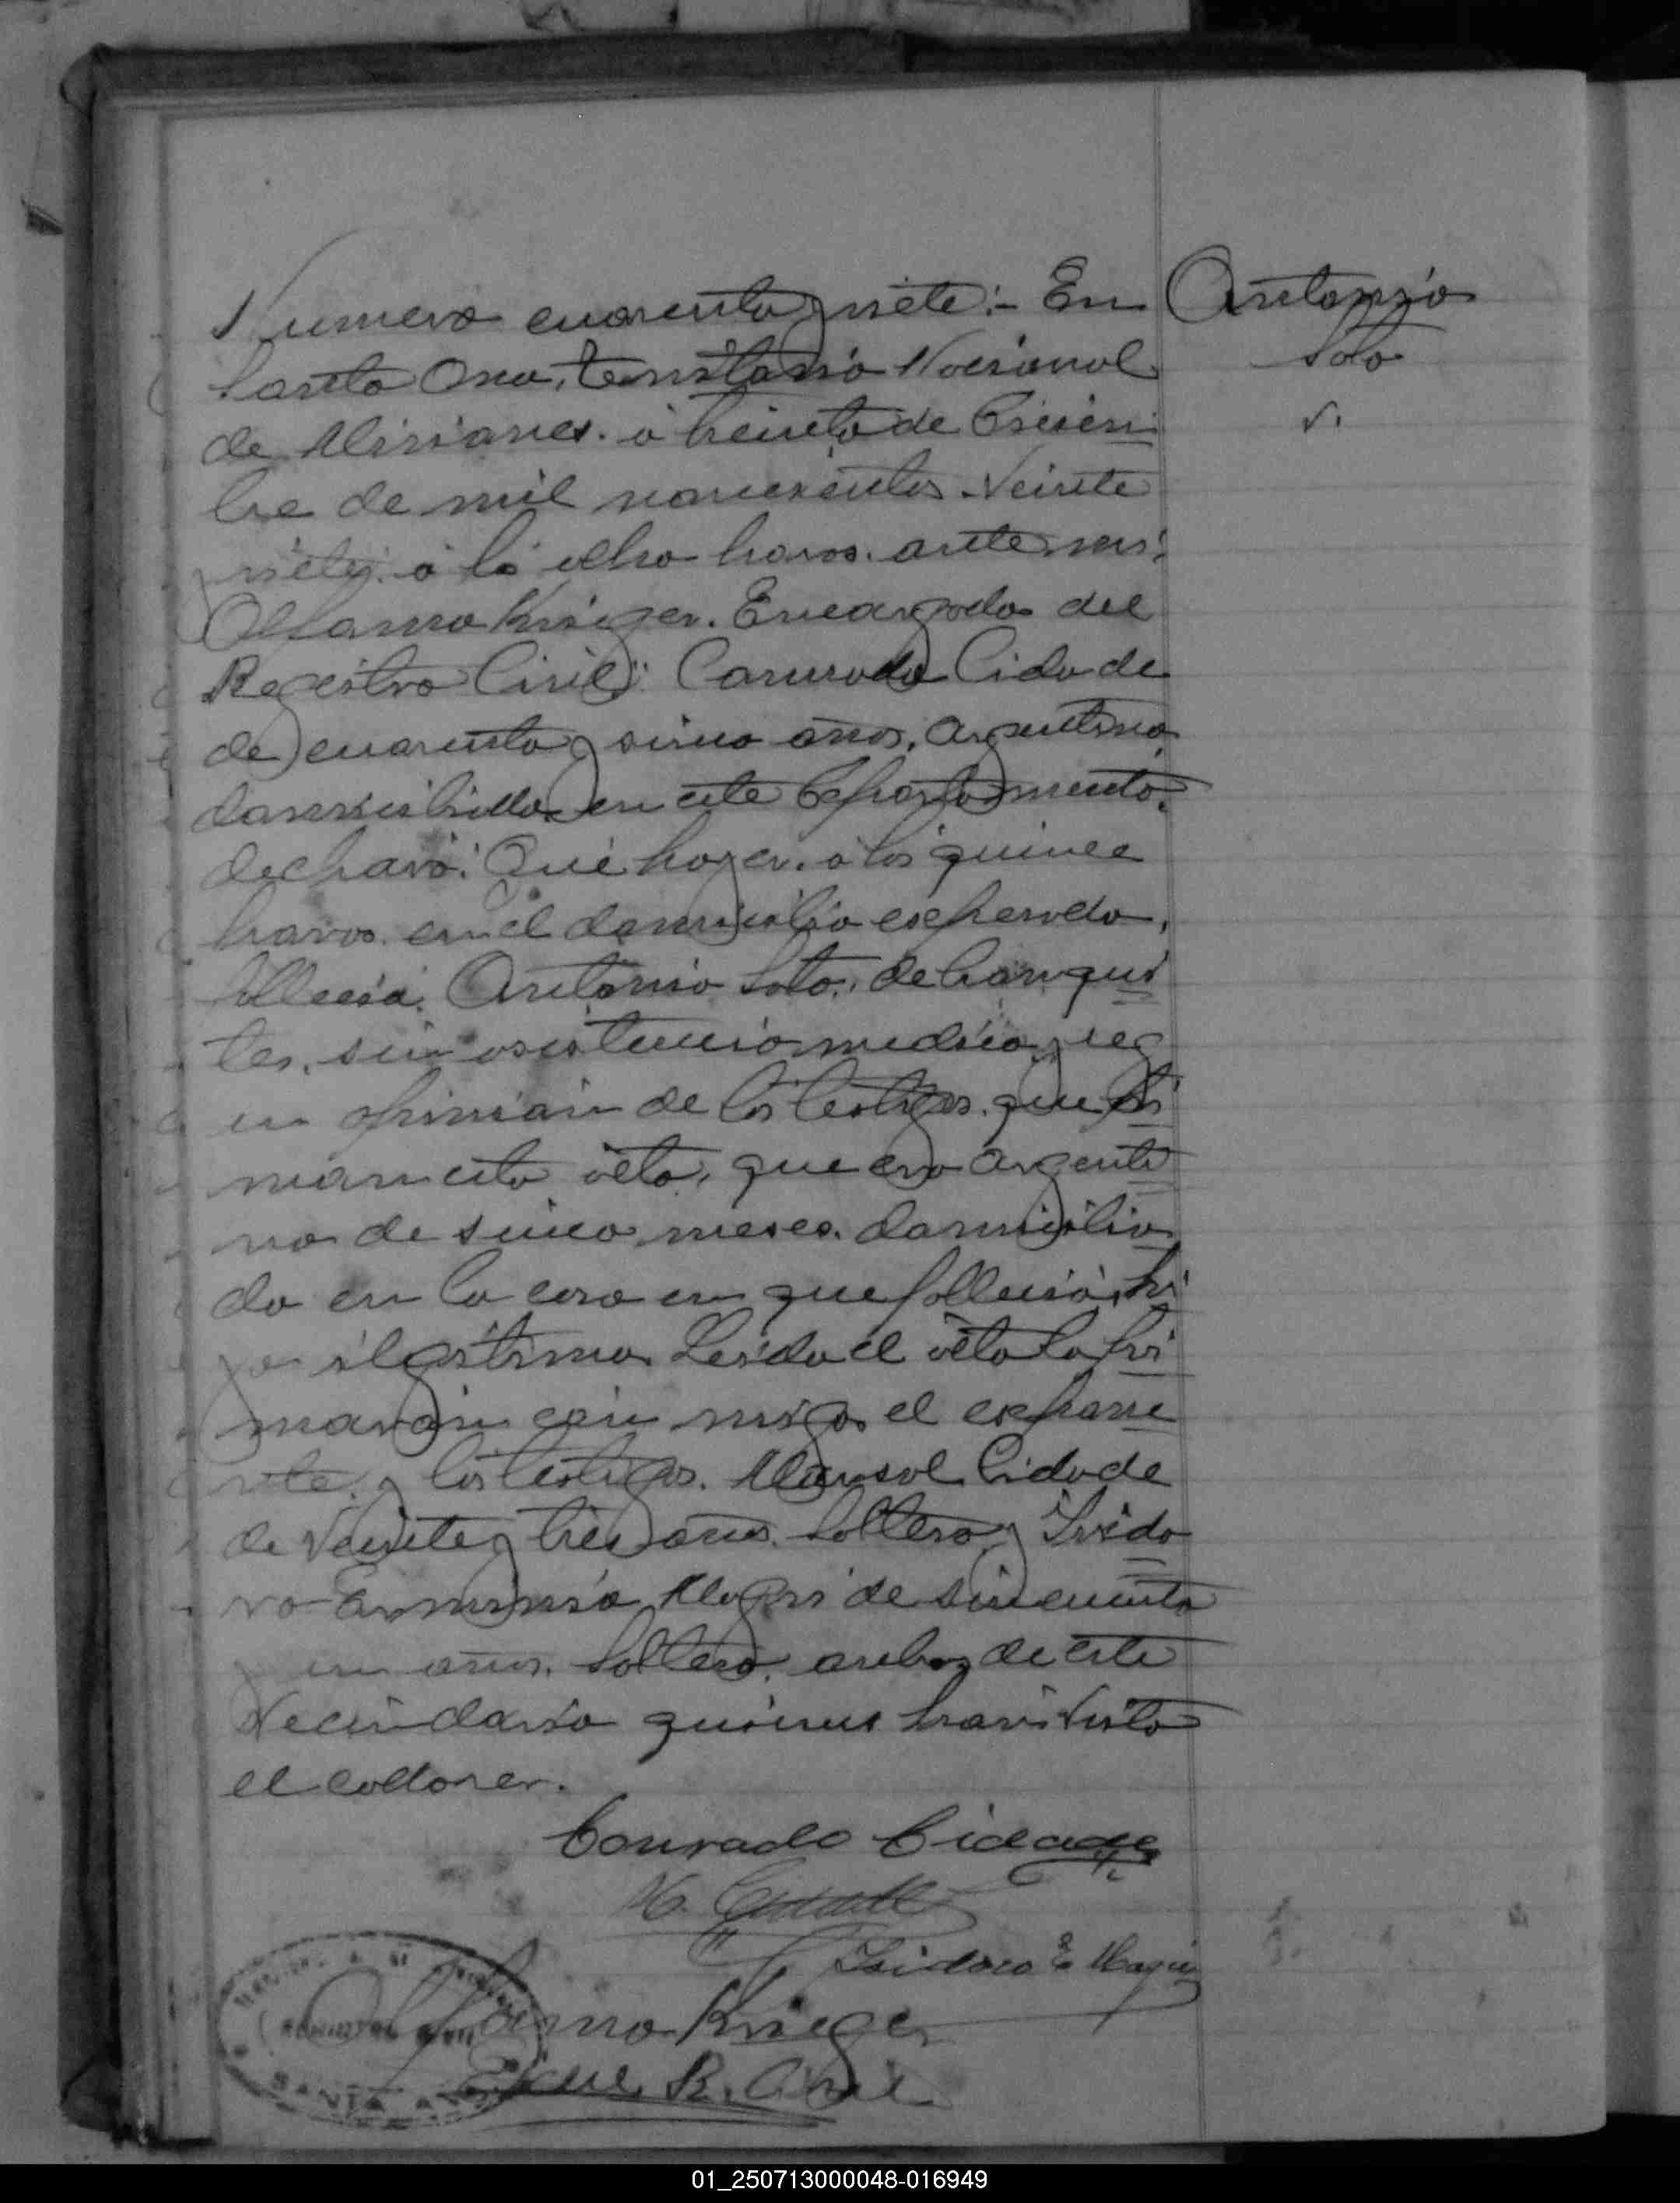 Numero cuarenta y siete:- En
Santa Ana, territorio Nacional
de Misiones. à treinta de Diciem
bre de mil novecientos Veinte
y siete, à las ocho horas. ante mi:
Krieger. Encargado del
Registro Civil: Conrado Cidade
de cuarenta y sinco años, Argentino,
domiciliado en este Departamento.
declaró: Qué hayer. a las quince
horas en el domicilio espresado,
fallecia. Antonio Soto, de bronqui
tes, sin asistencia medica, seg
un opinion de los testigos que fir
man esta acta, que era argenti
no de sinco meses. domicilia
do en la casa en que falleció, hi
jo ilegitimo. Leida el acta la fir
maron con migo el expone
nte, y los testigos. Manoel Cidade
de Veinte y tres años. Soltero, y Isido
ro Erminio Magri de sincuenta
y un años. Soltero. ambos de este
Vecindario quienes han visto
el cadaver.
Antonio
Soto
V.
Conrado Cidade
M. Cidade
Isidoro E. Magri
Krieger
Enc. R. Civil
REGISTRO CIVIL
SANTA ANA
01_250713000048-016949